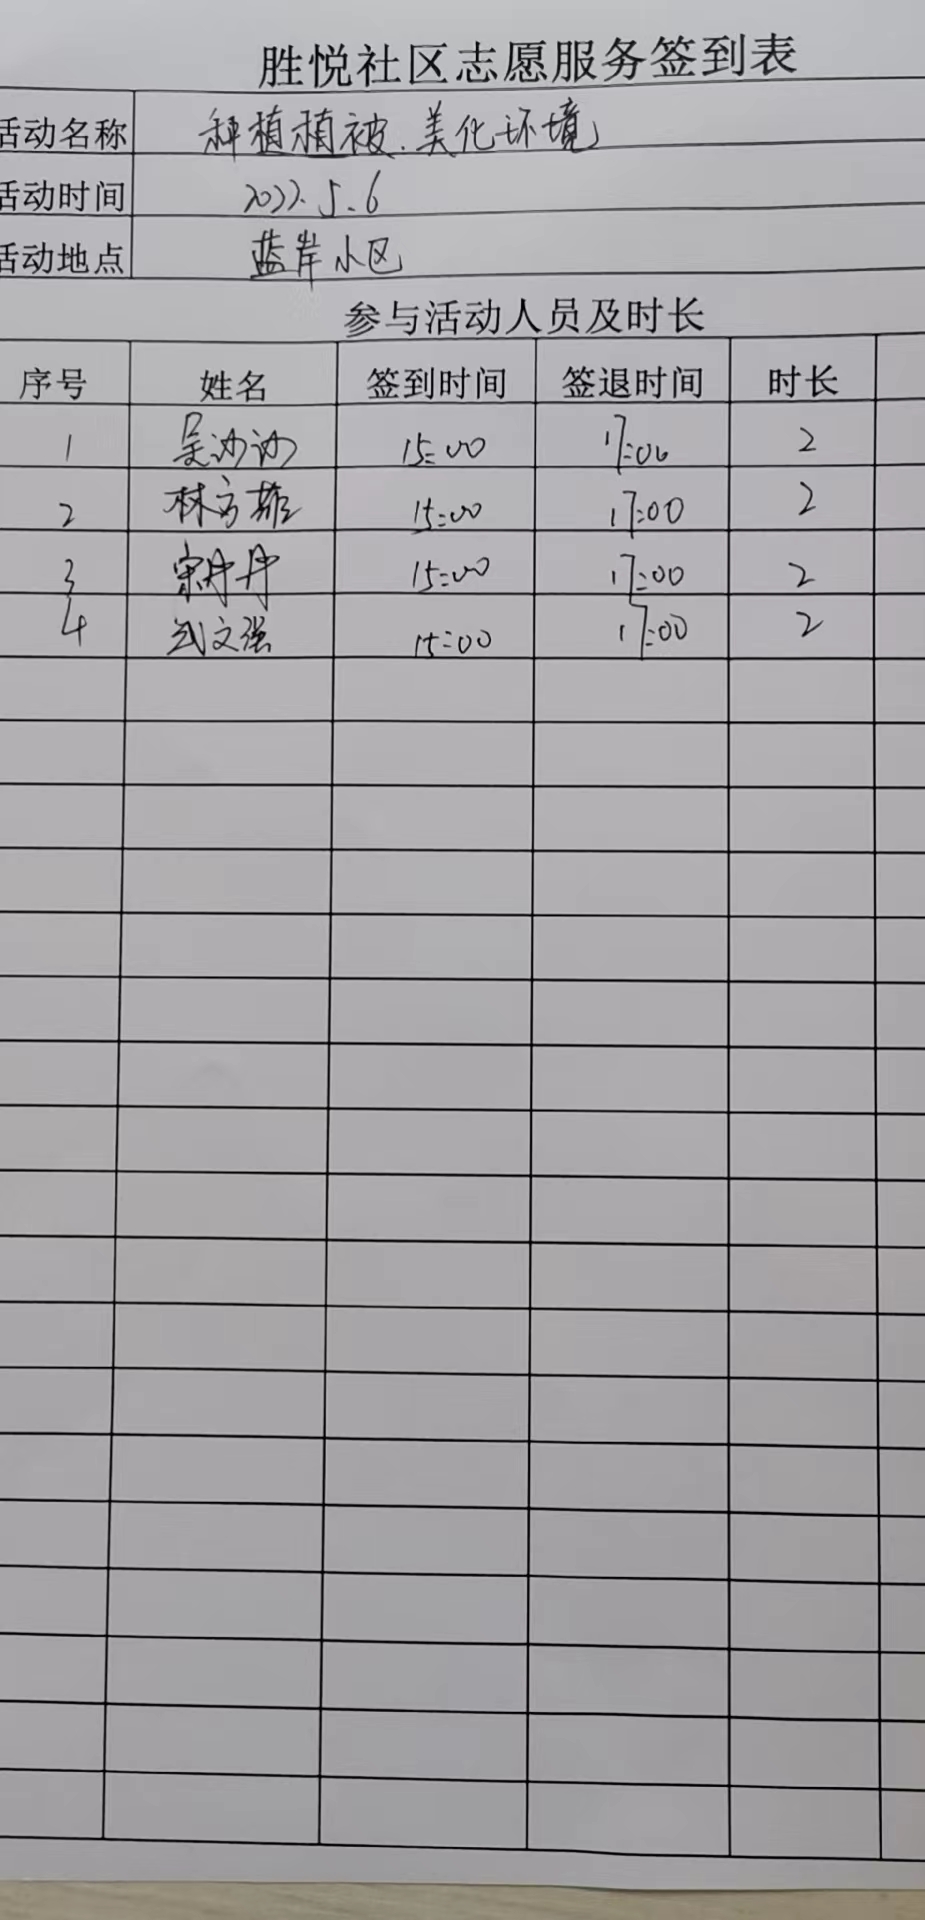 胜悦社区志愿服务签到表
活动名称 种植植被.美化环境
活动时间 2022.5.6
活动地点 蓝岸小区
参与活动人员及时长
序号 姓名 签到时间 签退时间 时长
1 吴沙沙 15:00 17:00 2
2 林方雄 15:00 17:00 2
3 宋丹丹 15:00 17:00 2
4 武文强 15:00 17:00 2